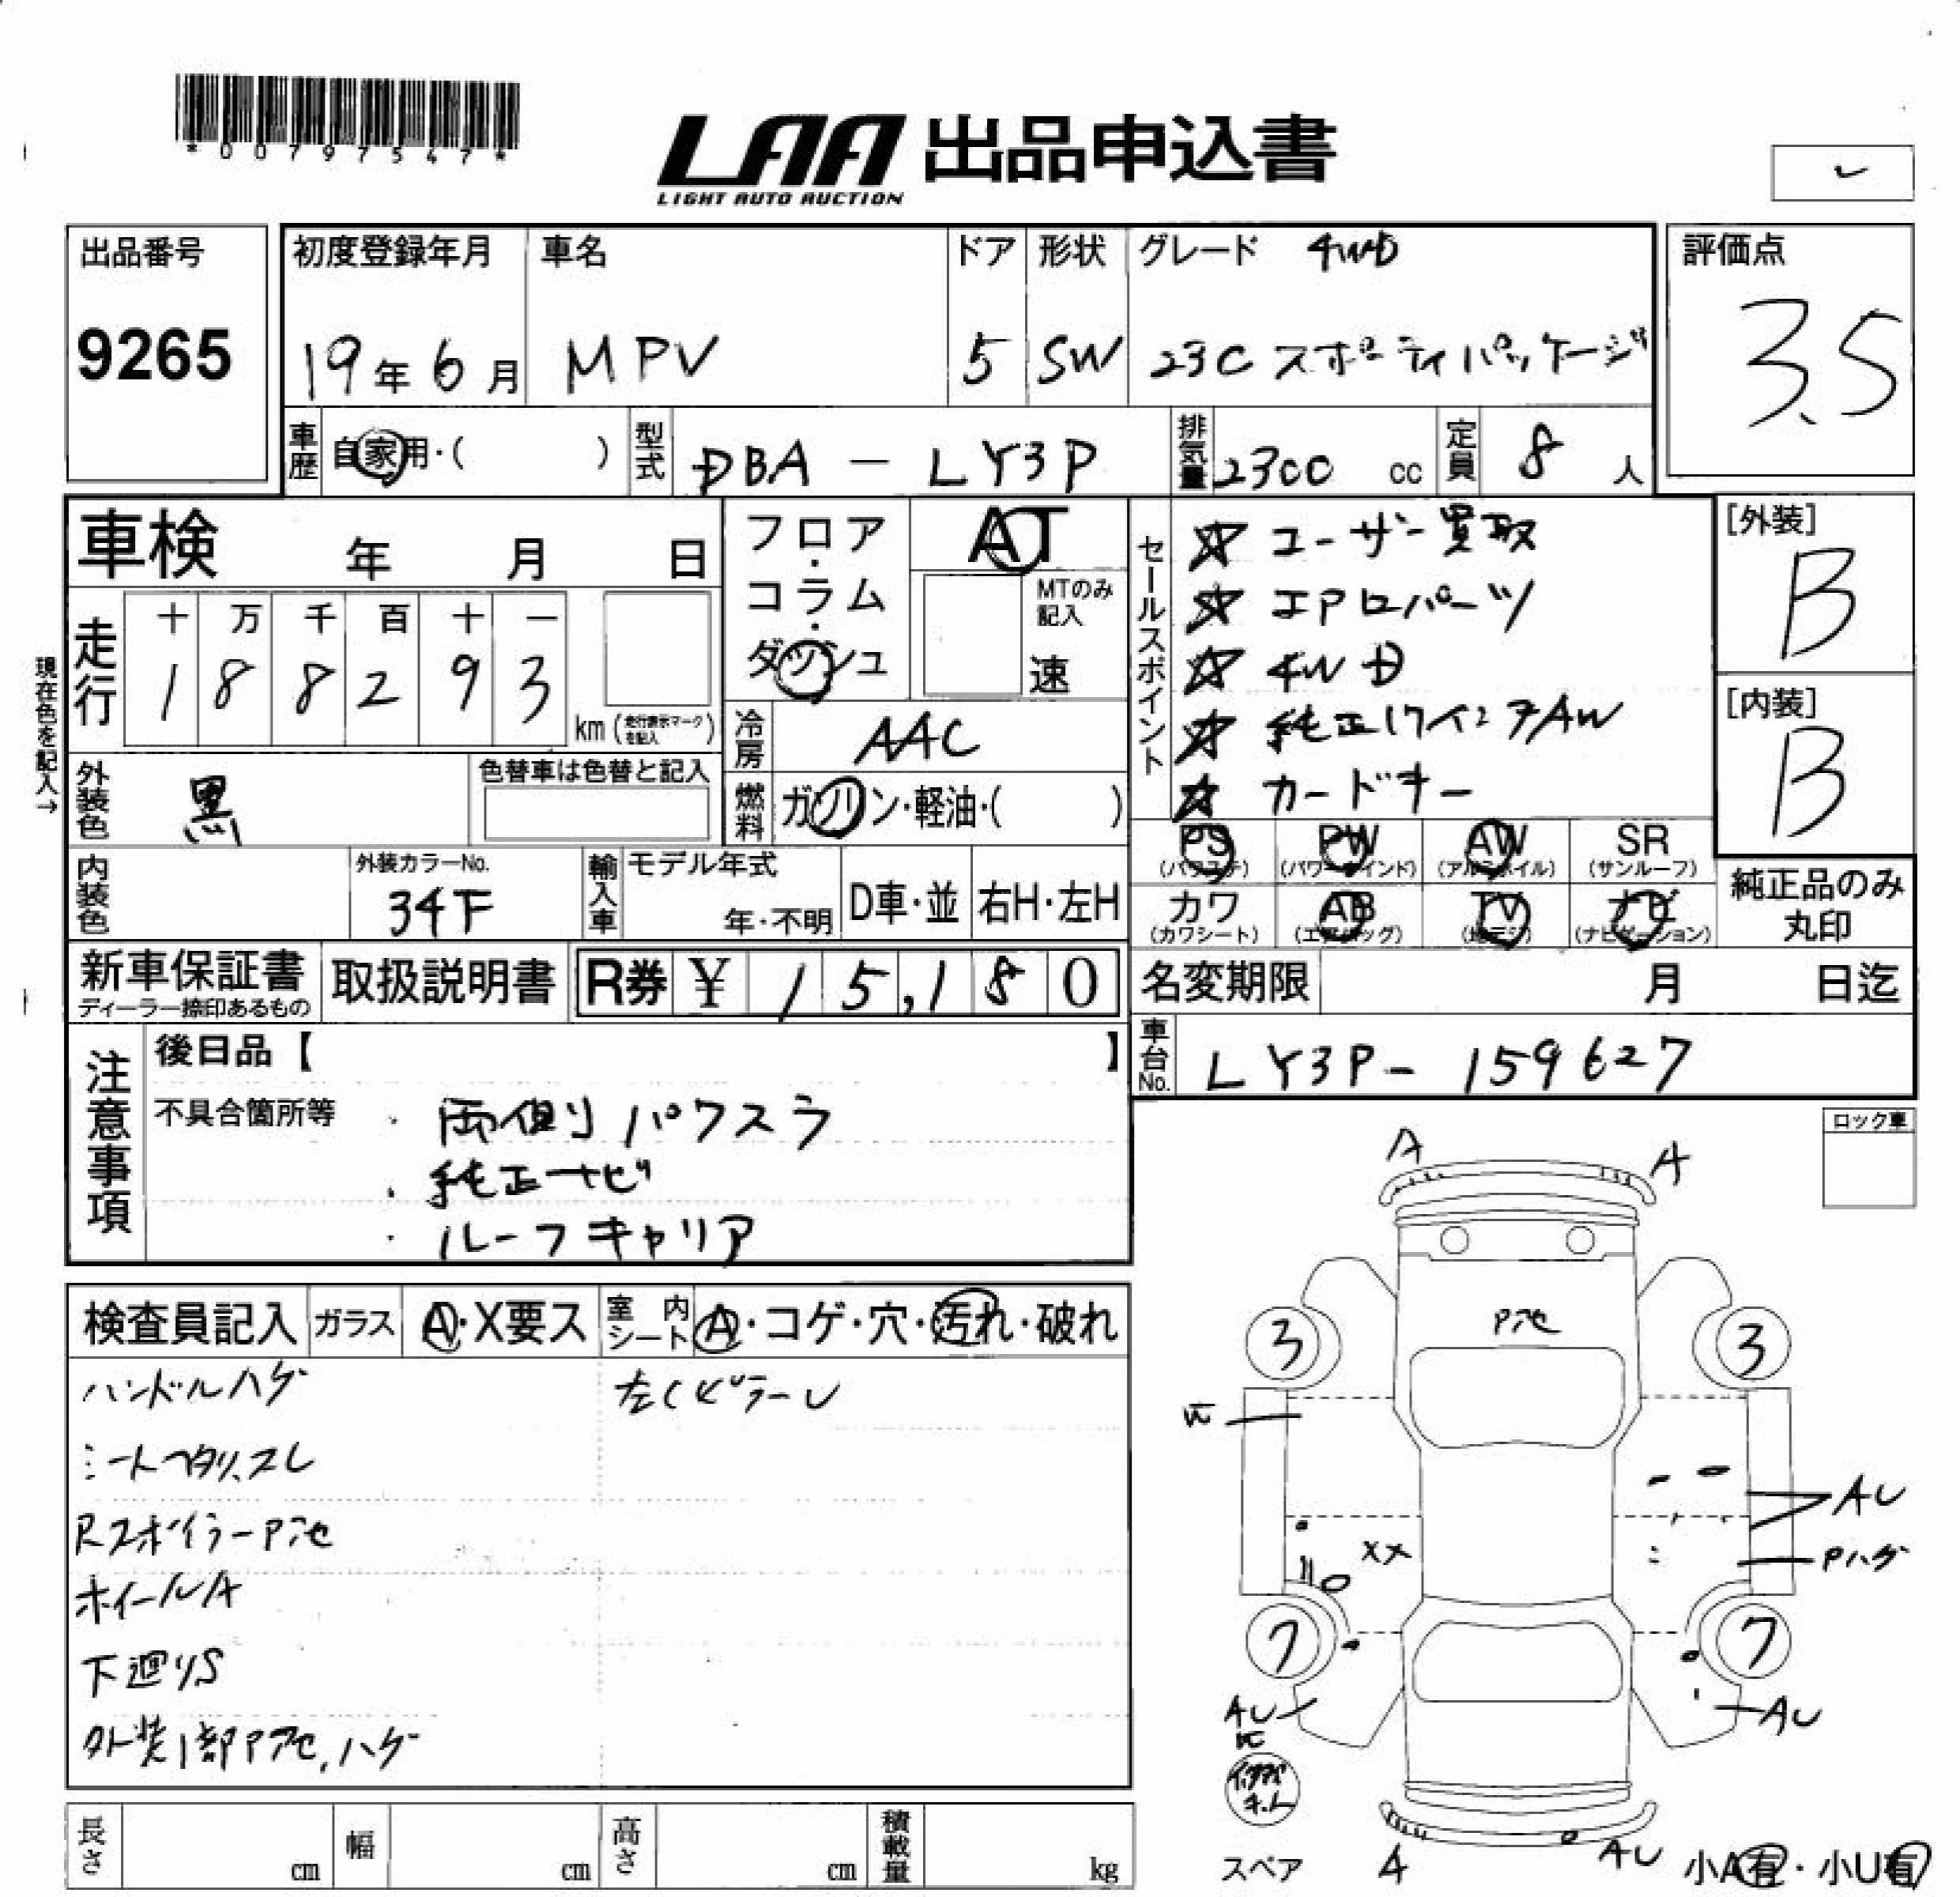 *00797547*
LAA 出品申込書
LIGHT AUTO AUCTION
出品番号
9265
初度登録年月
19年6月
車名
MPV
ドア
5
形状
SW
グレード 4WD
23C スポーティパッケージ
評価点
3.5
車歴 自家用・( )
型式 DBA - LY3P
排気量 2300 cc
定員 8 人
車検 年 月 日
フロア・コラム・ダッシュ
AT
MTのみ記入
速
セールスポイント
☆ ユーザー買取
☆ エアロパーツ
☆ 4WD
☆ 純正17インチAW
☆ カードキー
[外装]
B
[内装]
B
現在色を記入→
走行
十 万 千 百 十 一
1 8 8 2 9 3
km (走行表示マークを記入)
冷房 AAC
外装色 黒
色替車は色替と記入
燃料 ガソリン・軽油・( )
PS (パワステ)
PW (パワーウインド)
AW (アルミホイル)
SR (サンルーフ)
カワ (カワシート)
AB (エアバッグ)
TV (地デジ)
ナビ (ナビゲーション)
純正品のみ丸印
内装色
外装カラーNo.
34F
輸入車
モデル年式
年・不明
D車・並
右H・左H
新車保証書
ディーラー捺印あるもの
取扱説明書
R券 ¥ 15,180
名変期限 月 日迄
車台No. LY3P-159627
注意事項
後日品【 】
不具合箇所等
・両側パワスラ
・純正ナビ
・ルーフキャリア
ロック車
検査員記入
ガラス A・X要ス
室内シート A・コゲ・穴・汚れ・破れ
ハンドルハゲ
シートヘタリ、スレ
RスポイラーP泡
ホイールA
下廻りS
外装1部P泡、ハゲ
左CピラーU
A
A
P泡
3
3
AU
XX
Pハゲ
7
7
AU
AU
スペア
A
AU
小A有・小U有
長さ cm
幅 cm
高さ cm
積載量 kg